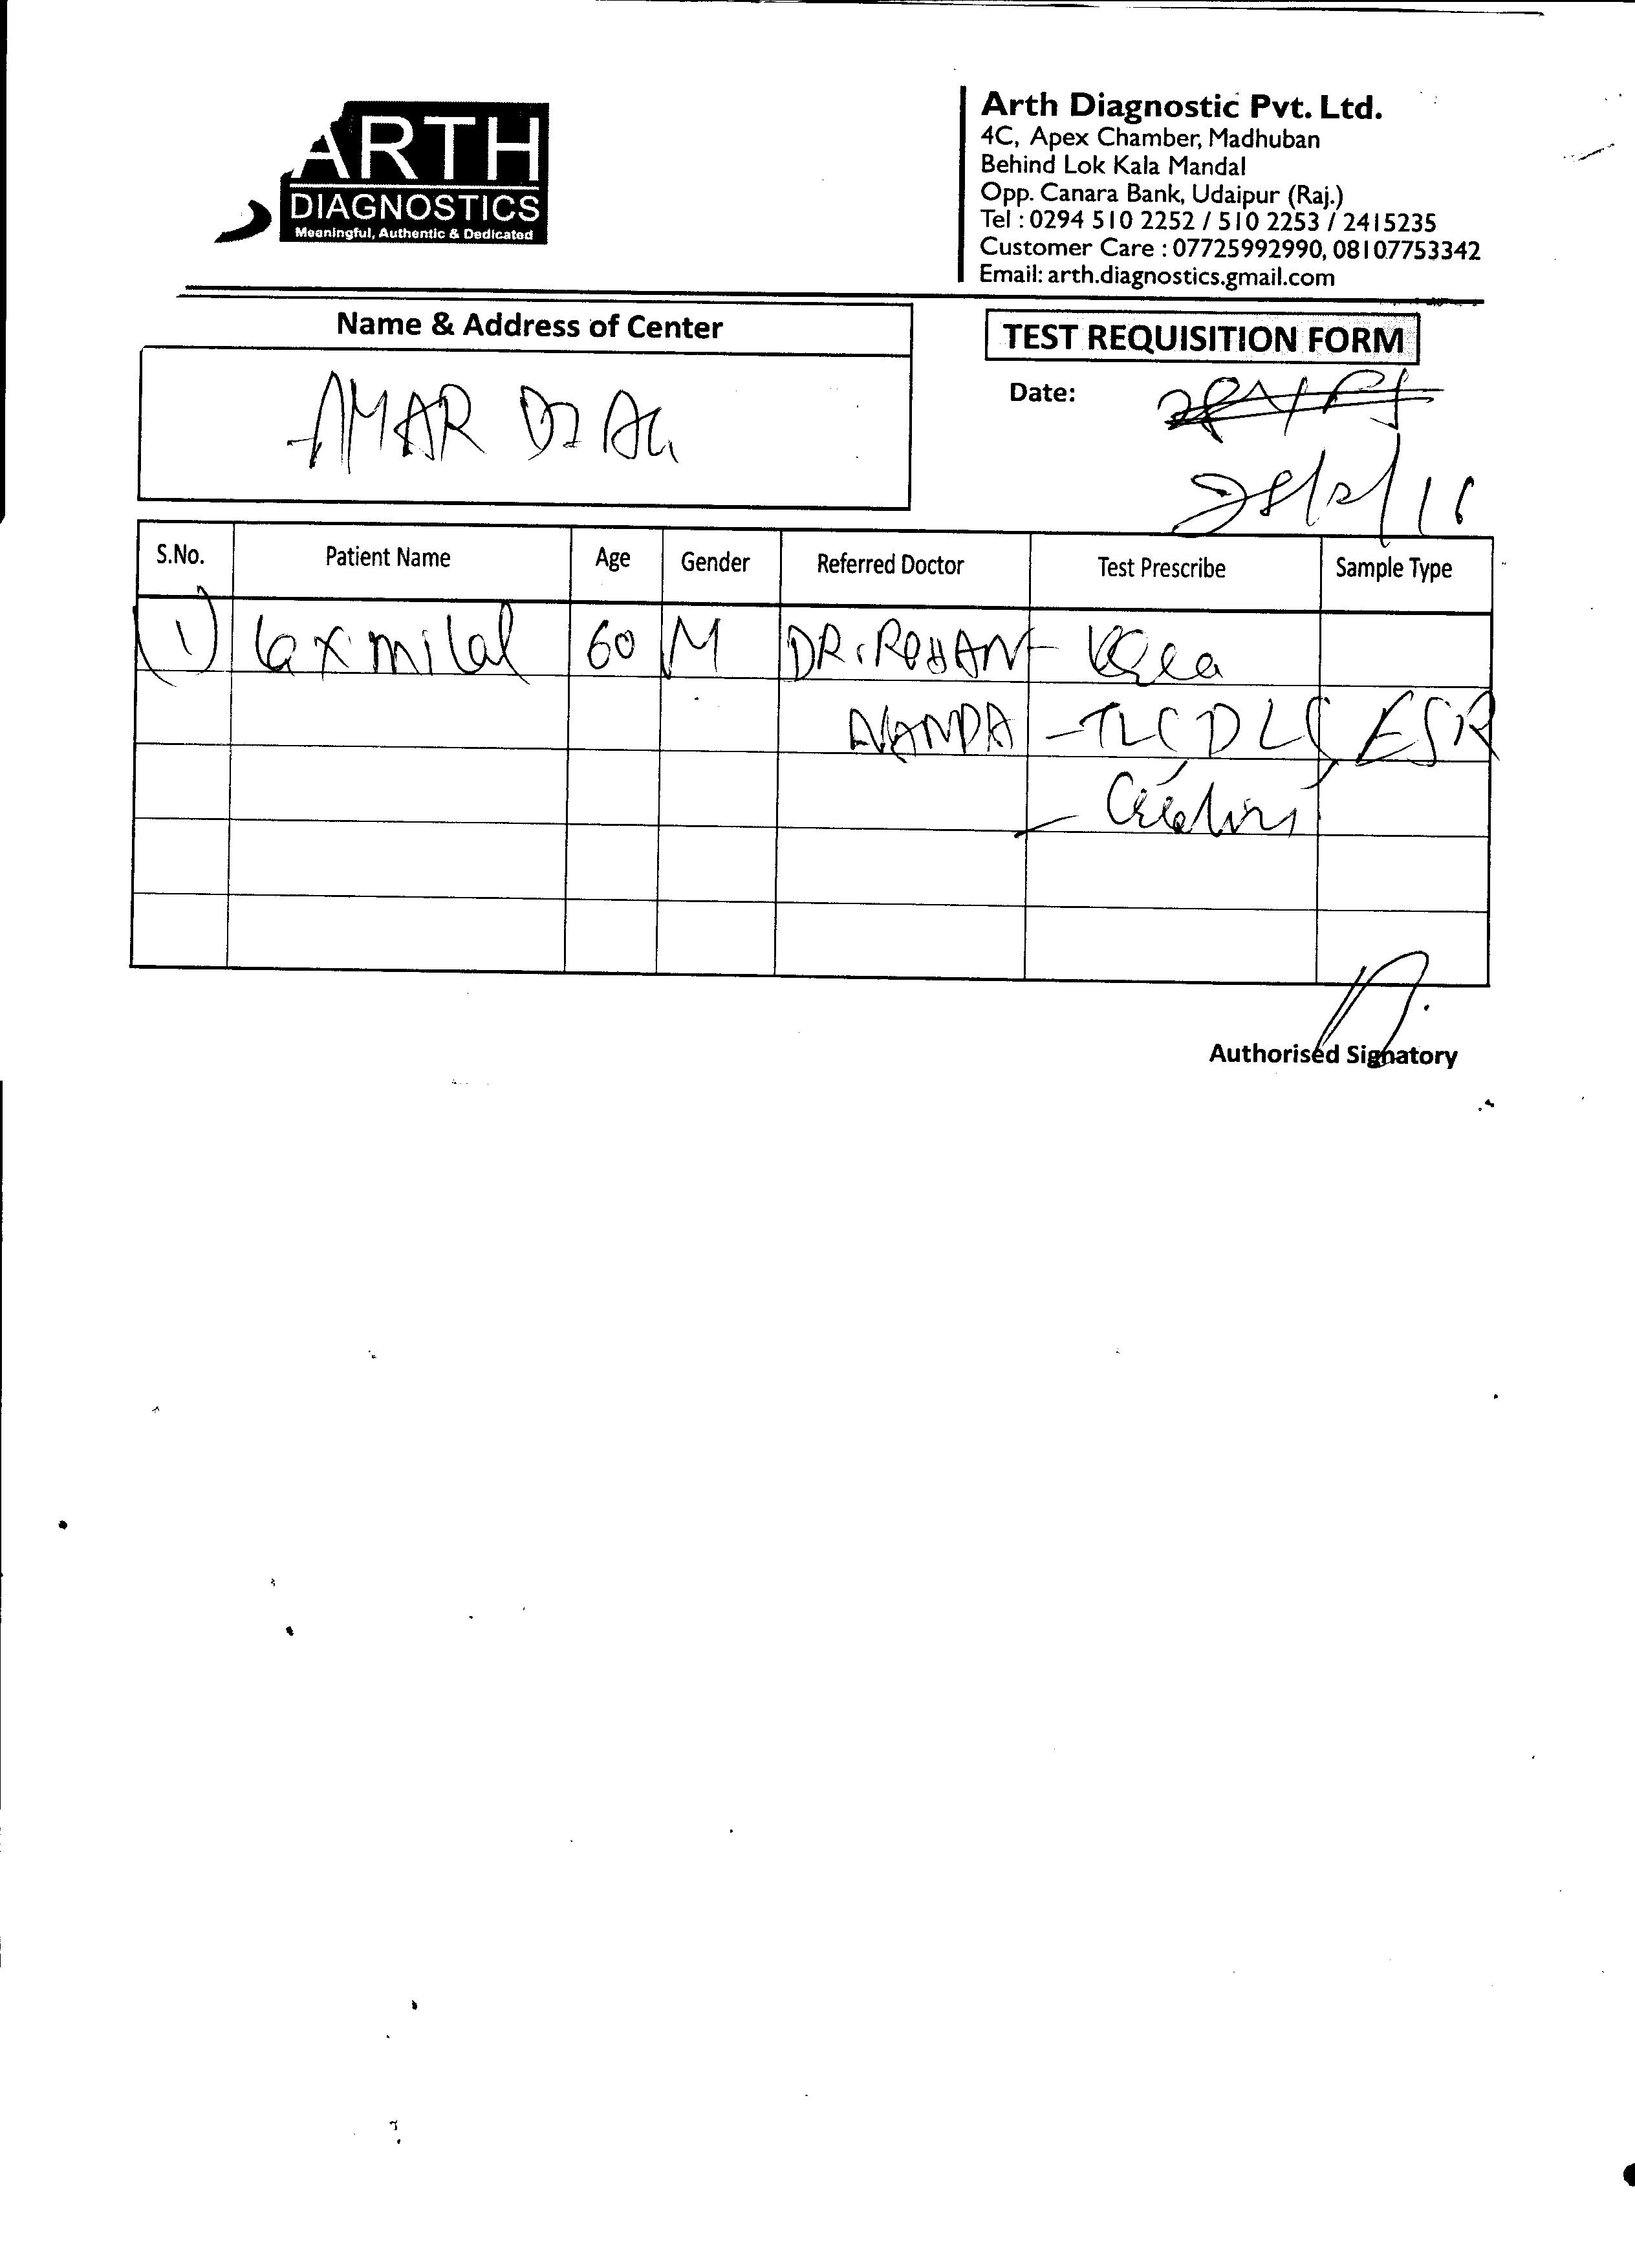 ARTH
DIAGNOSTICS
Meaningful, Authentic & Dedicated
Arth Diagnostic Pvt. Ltd.
4C, Apex Chamber, Madhuban
Behind Lok Kala Mandal
Opp. Canara Bank, Udaipur (Raj.)
Tel : 0294 510 2252 / 510 2253 / 2415235
Customer Care : 07725992990, 08107753342
Email: arth.diagnostics.gmail.com
Name & Address of Center
TEST REQUISITION FORM
AMAR
Date:
28/2/16
S.No. Patient Name Age Gender Referred Doctor Test Prescribe Sample Type
(1) laxmilal 60 M DR. ROHAN
NANDA - TLC DLC, ESR
Authorised Signatory